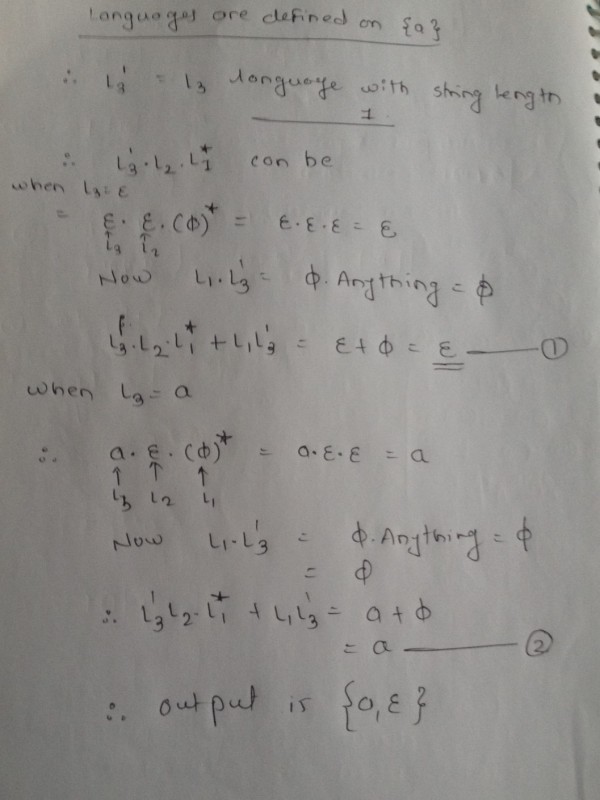 Languages are defined on {a}
∴ L₃' = L₃ language with string length
1
∴ L₃'.L₂.L₁* can be
when L₃=ε
= ε. ε. (ϕ)* = ε.ε.ε = ε
↑ ↑
L₃ L₂
Now L₁.L₃' = ϕ.Anything = ϕ
L₃'.L₂.L₁* + L₁L₃' = ε+ϕ = ε —— ①
when L₃=a
∴ a. ε. (ϕ)* = a.ε.ε = a
↑ ↑ ↑
L₃ L₂ L₁
Now L₁.L₃' = ϕ.Anything = ϕ
= ϕ
∴ L₃'L₂.L₁* + L₁L₃' = a+ϕ
= a —— ②
∴ output is {a,ε}